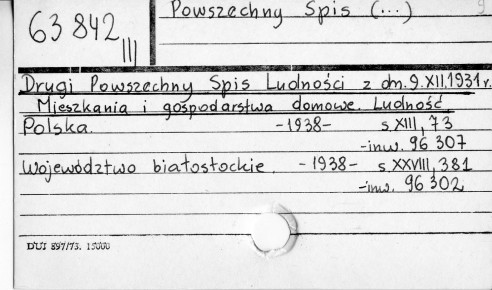 Powszechny Spis (...)
63 842
III
Drugi Powszechny Spis Ludności z dn. 9.XII.1931 r.
Mieszkania i gospodarstwa domowe. Ludność
Polska. -1938- s. XIII, 73
-inw. 96 307
Województwo białostockie. -1938- s. XXVIII, 381
-inw. 96 302
DUJ 897/73. 15000